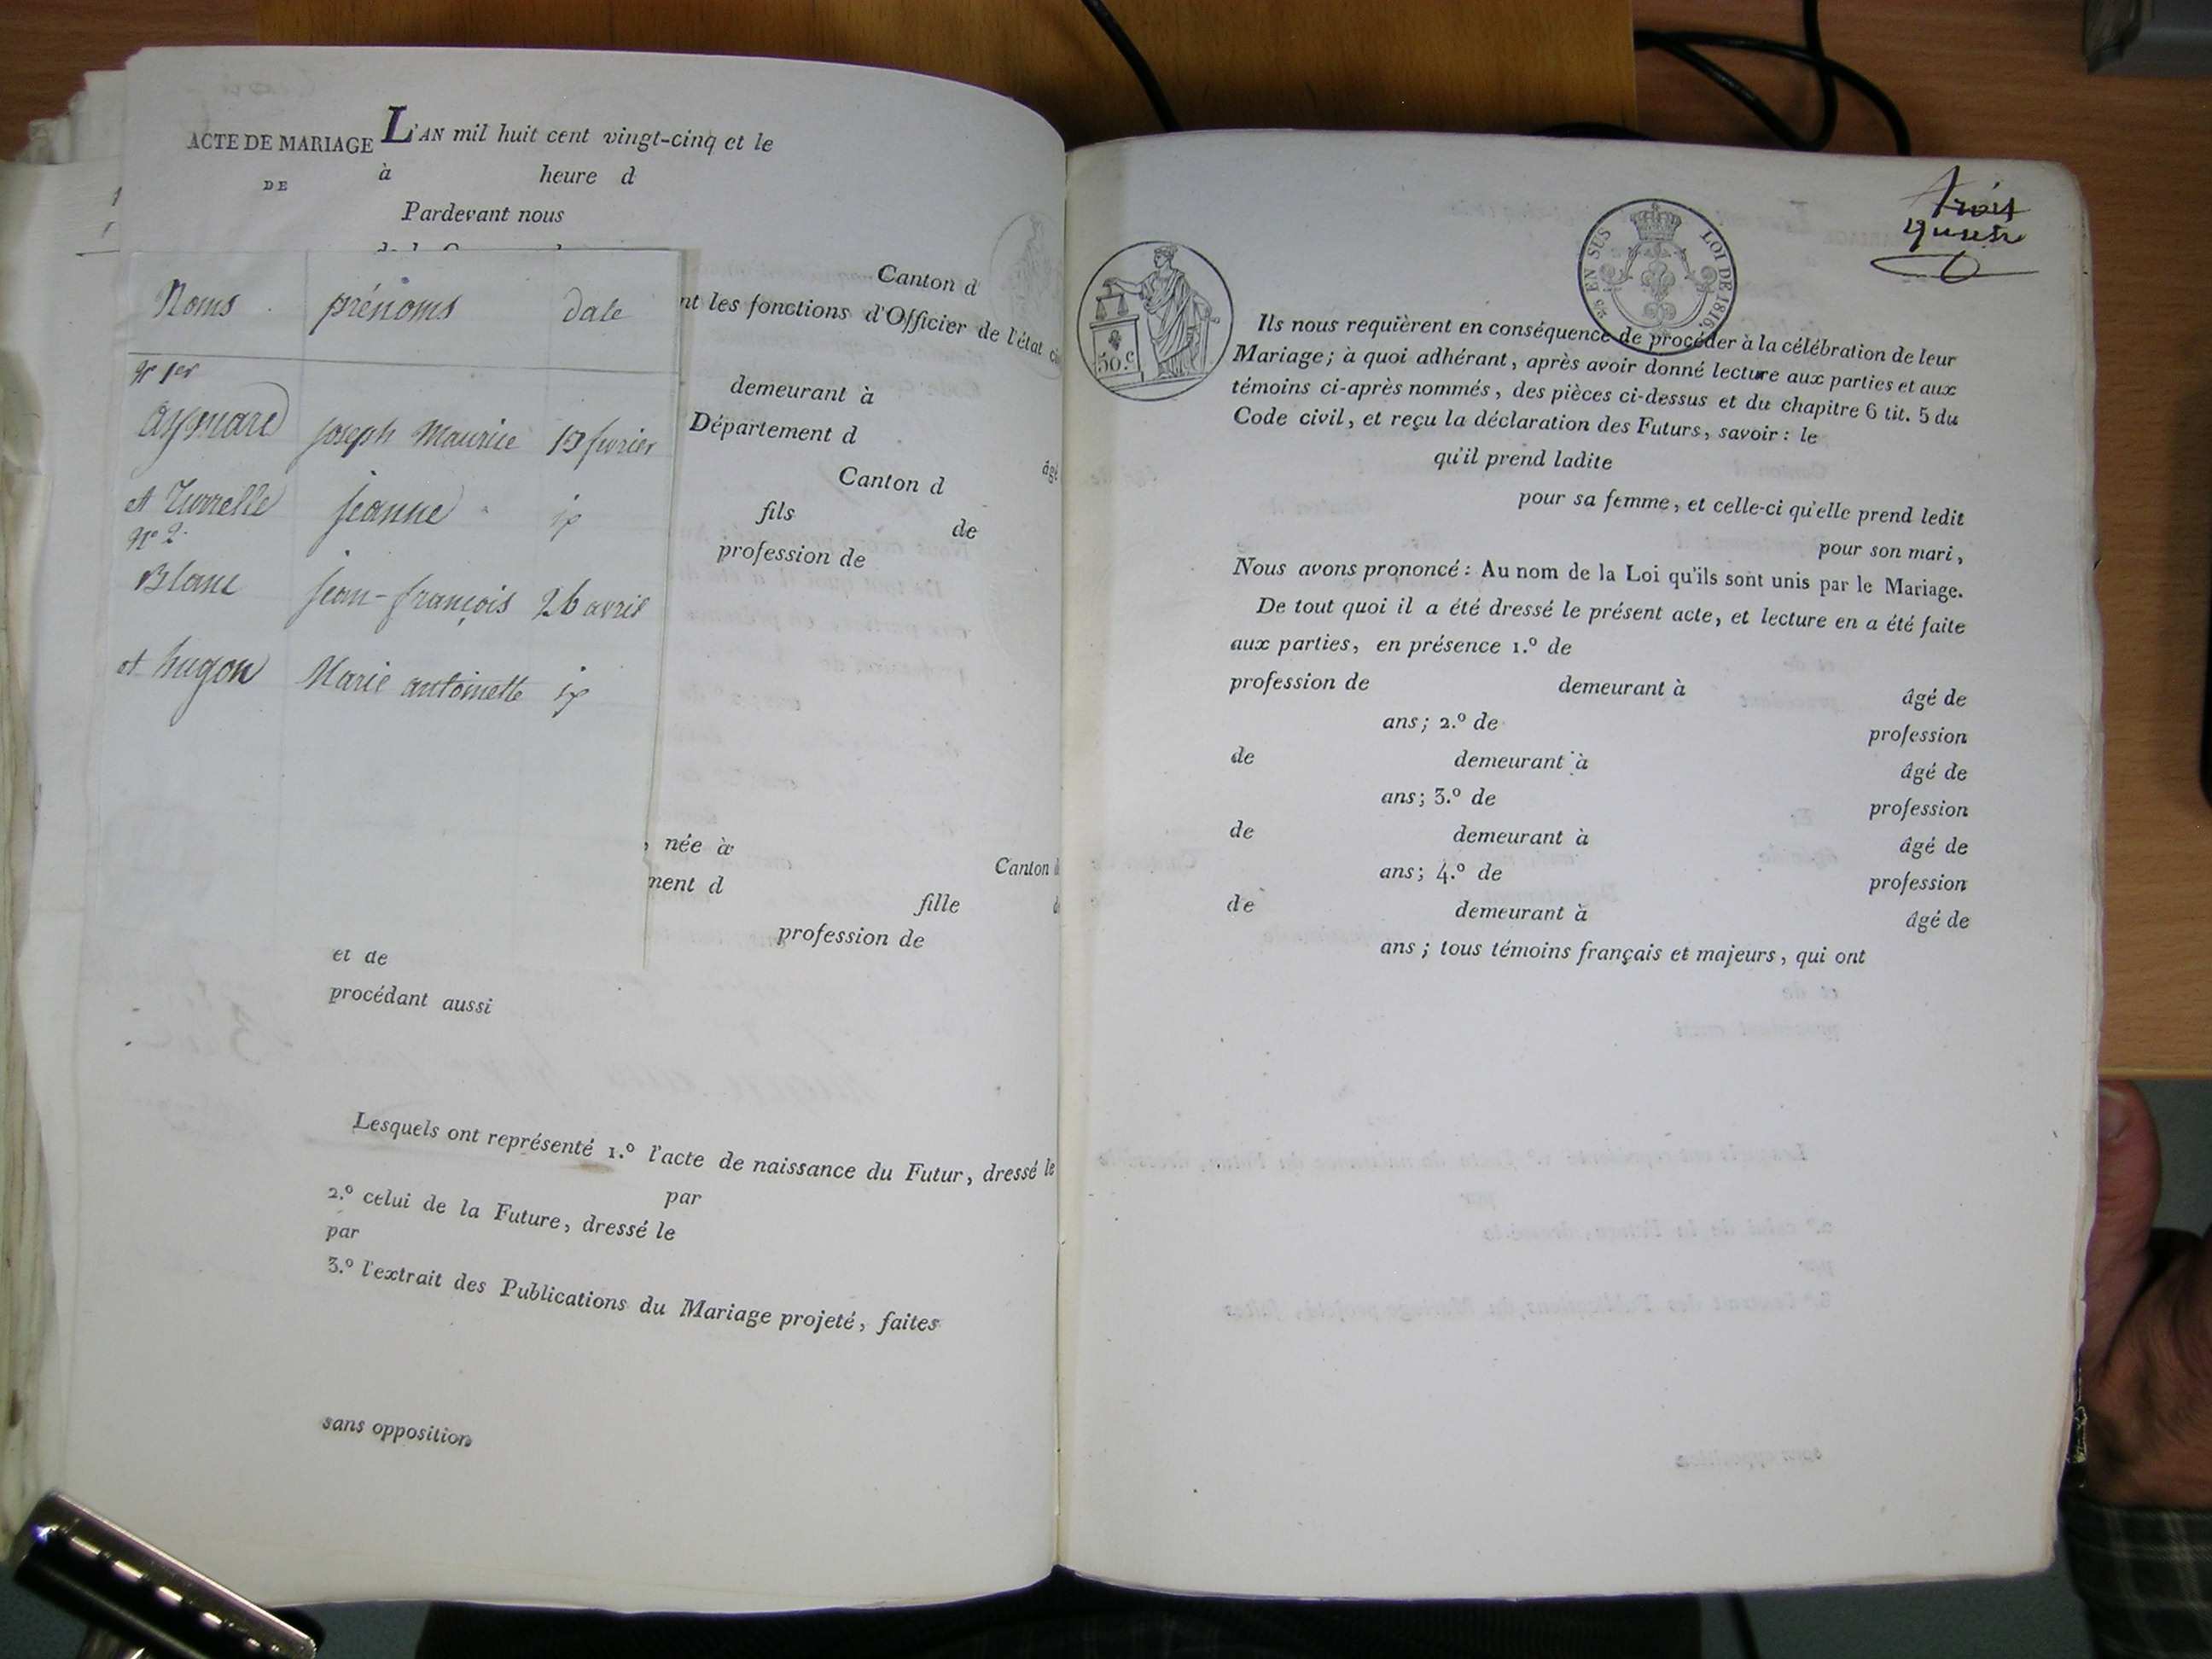 ACTE DE MARIAGE
DE
L'AN mil huit cent vingt-cinq et le
à heure d
Pardevant nous
Canton d
nt les fonctions d'Officier de l'état ci
demeurant à
Département d
âgé
Canton d
fils de
profession de
, née à Canton d
ment d
fille d
profession de
et de
procédant aussi
Lesquels ont représenté 1.º l'acte de naissance du Futur, dressé le
par
2.º celui de la Future, dressé le
par
3.º l'extrait des Publications du Mariage projeté, faites
sans opposition
Noms prénoms date
Nº 1er
joseph Maurice février
et jeanne
Nº 2
Blanc jean-françois 26 avril
et hugon Marie antoinette
trois
50.c
EN SUS LOI DE 1816.
Ils nous requièrent en conséquence de procéder à la célébration de leur
Mariage; à quoi adhérant, après avoir donné lecture aux parties et aux
témoins ci-après nommés, des pièces ci-dessus et du chapitre 6 tit. 5 du
Code civil, et reçu la déclaration des Futurs, savoir: le
qu'il prend ladite
pour sa femme, et celle-ci qu'elle prend ledit
pour son mari,
Nous avons prononcé: Au nom de la Loi qu'ils sont unis par le Mariage.
De tout quoi il a été dressé le présent acte, et lecture en a été faite
aux parties, en présence 1.º de
profession de demeurant à âgé de
ans; 2.º de profession
de demeurant à âgé de
ans; 3.º de profession
de demeurant à âgé de
ans; 4.º de profession
de demeurant à âgé de
ans; tous témoins français et majeurs, qui ont